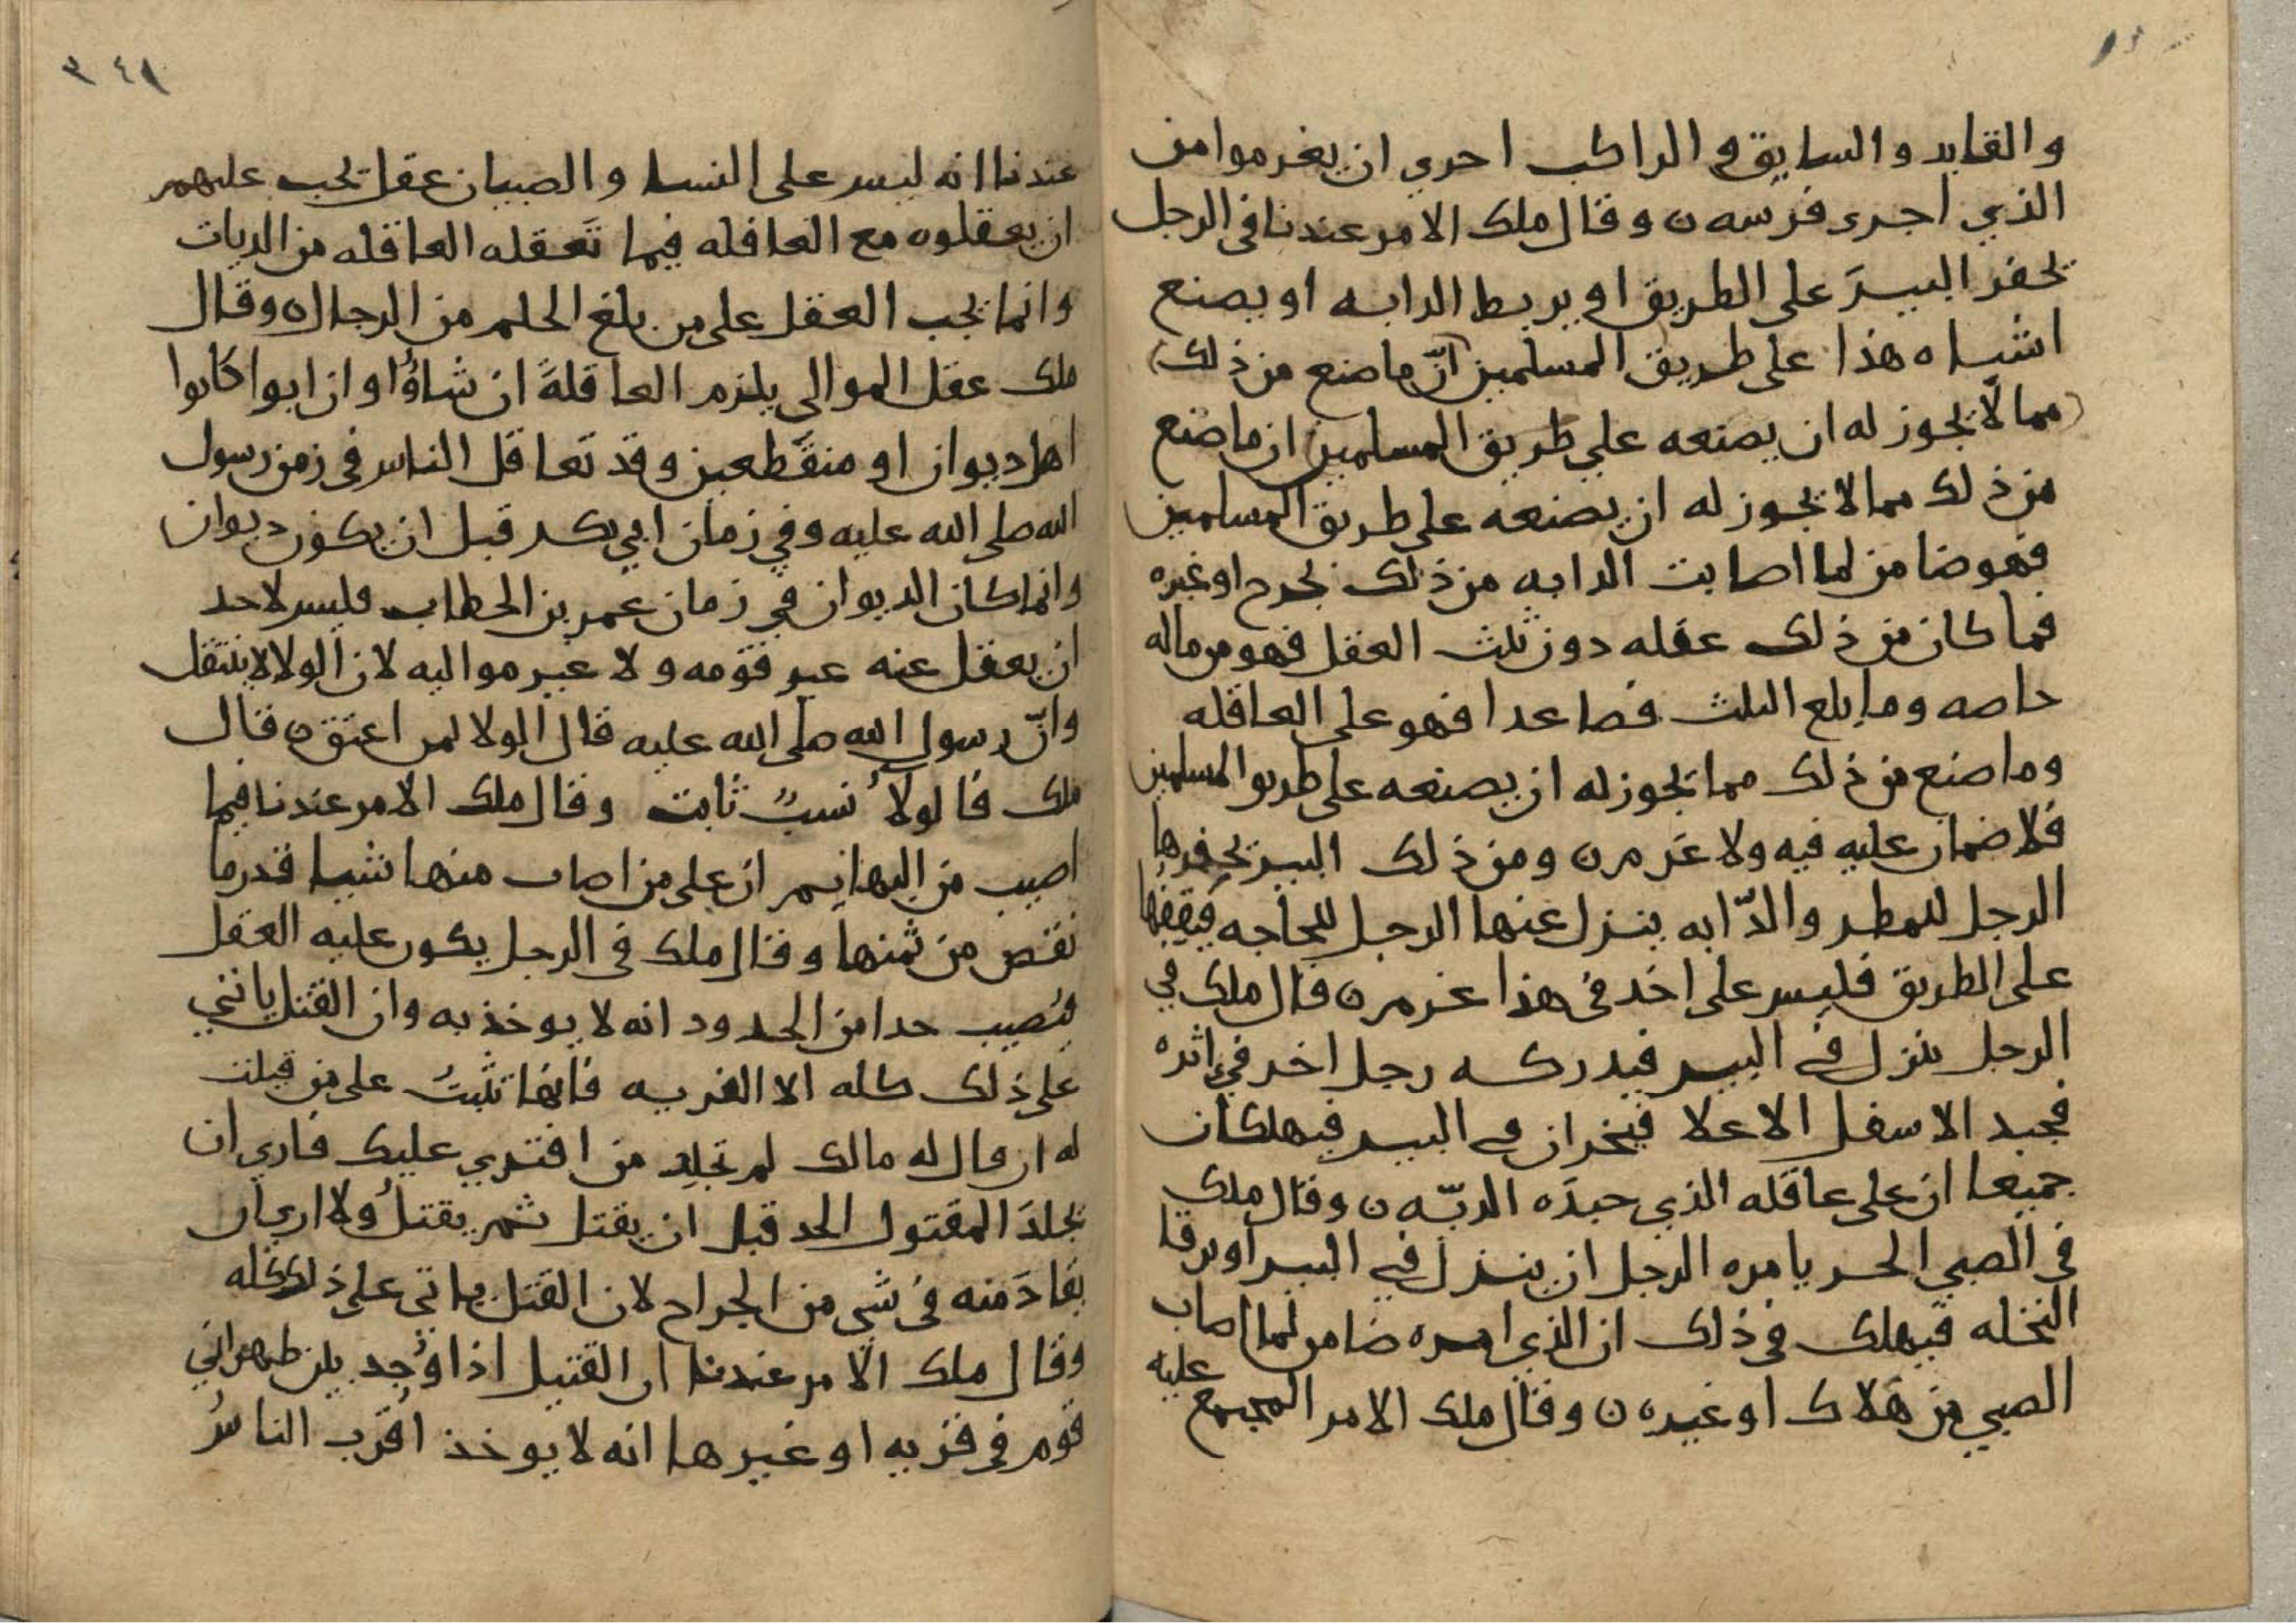 والقايد والسايق والراكب احري ان يغرموا من
الذي اجرى فرسه ن وقال ملك الامر عندنا في الرجل
يحفر البيرَ على الطريق او يربط الدابه او يصنع
اشباه هذا على طريق المسلمين أنّ ما صنع من ذلك)
(مما لا يجوز له ان يصنعه علي طريق المسلمين) ان ما صنع
من ذلك مما لا يجوز له ان يصنعه على طريق المسلمين
فهو ضامن لما اصابت الدابه من ذلك بجرح او غيره
فما كان من ذلك عقله دون ثلث العقل فهو من ماله
خاصه وما بلغ الثلث فصاعدا فهو على العاقله
وما صنع من ذلك مما يجوز له ان يصنعه على طريق المسلمين
فلا ضمان عليه فيه ولا غرم ن ومن ذلك البير يحفرها
الرجل للمطر والدّابه ينزل عنها الرجل للحاجه فيقفها
على الطريق فليس على احد في هذا غرم ن قال ملك في
الرجل ينزل في البير فيدركه رجل اخر في اثره
فيجبد الاسفل الاعلا فيخران في البير فيهلكان
جميعا ان على عاقله الذي جبدَه الديّه ن وقال ملك
في الصبي الحر يامره الرجل ان ينزل في البير او يرقا
النخله فيهلك في ذلك ان الذي امره ضامن لما اصاب
الصبي من هَلاك او غيره ن وقال ملك الامر المجتمع عليه
٣٤٩
عندنا انه ليس على النسا والصبيان عقل يجب عليهم
ان يعقلوه مع العاقله فيما تَعقله العاقله من الديات
وانما يجب العقل على من بلغ الحلم من الرجال ه وقال
ملك عقل الموالي يلزم العاقلةَ ان شاؤُا وان ابوا كانوا
اهل ديوان او منقَطعين وقد تَعاقل الناس في زمن رسول
الله صلى الله عليه وفي زمان ابي بكر قبل ان يكون ديوان
وانما كان الديوان في زمان عمر بن الخطاب فليس لاحد
ان يعقل عنه غير قومه ولا غير مواليه لان الولا لا ينتقل
وانّ رسول الله صلى الله عليه قال الولا لمن اعتق ه قال
ملك فالولاُ نسبٌ ثابت وقال ملك الامر عندنا فيما
اصيب من البهايم ان على من اصاب منها شيا قدر ما
نقص من ثمنها وقال ملك في الرجل يكون عليه القتل
فيُصيب حدا من الحدود انه لا يوخذ به وان القتل ياتي
على ذلك كله الا الفريه فانها تثبتُ على من قيلت
له ان يقال له مالك لم تجلِد من افتري عليك فاري ان
يجلدَ المقتول الحد قبل ان يقتل ثم يقتلُ ولا اري ان
يقادَ منه في شي من الجراح لان القتل ياتي على ذلك كله
وقال ملك الامر عندنا ان القتيل اذا وُجد بين ظهراني
قوم في قريه او غيرها انه لا يوخذ اقرب الناس